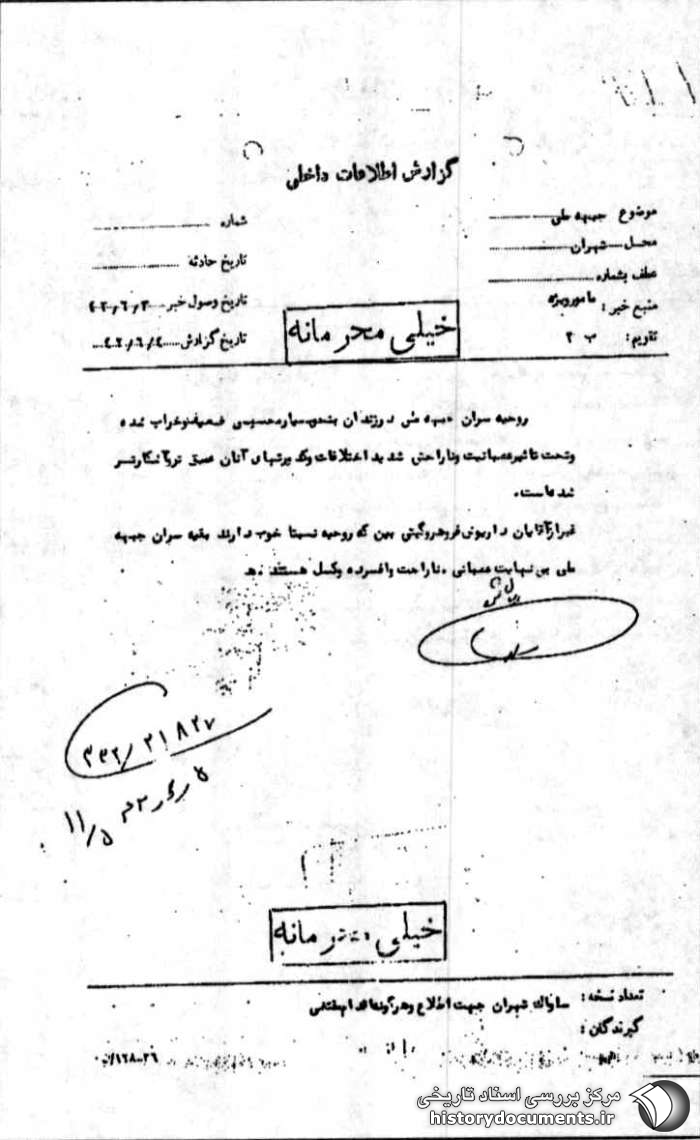 گزارش اطلاعات داخلی
موضوع جبهه ملی
شماره
محل شهران
تاریخ حادثه
عطف بشماره
تاریخ وصول خبر ۴۲/۶/۳
منبع خبر: مامور ویژه
تاریخ گزارش ۴۲/۶/۴
تقویم: ب ۲
خیلی محرمانه
روحیه سران جبهه ملی در زندان بنحو بسیار محسوسی ضعیف و خراب شده
وتحت تاثیر عصبانیت و ناراحتی شدید اختلافات و کدورتهای آنان عمیق تر و آشکارتر
شده است.
غیر از آقایان داریوش فروهر و گیتی بین که روحیه نسبتا خوب دارند بقیه سران جبهه
ملی بی نهایت عصبانی، ناراحت و افسرده و کسل هستند. ه
۳۳۲/۲۱۸۲۷
۱۱/۵
خیلی محرمانه
تعداد نسخه:
ساواک شهران جهت اطلاع و هرگونه اقدام مقتضی
گیرندگان:
مرکز بررسی اسناد تاریخی
historydocuments.ir